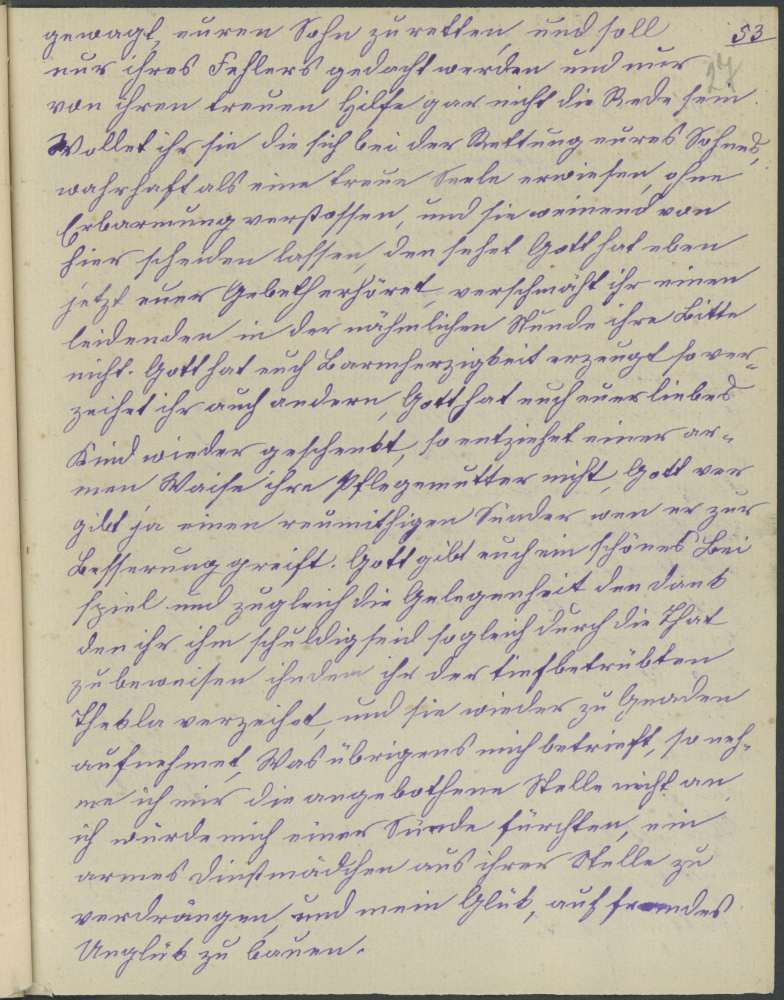 53
27
gewagt, euren Sohn zu retten, und soll
nur ihres Fehlers gedacht werden und nur
von ihren treuen Hilfe gar nicht die Rede sein.
Wollet ihr sie die sich bei der Rettung eures Sohnes,
wahrhaft als eine treue Seele erwiesen, ohne
Erbarmung verstossen, und sie weinend von
hier scheiden lassen, den sehet Gott hat eben
jetzt euer Gebeth erhöret, verschmäht ihr einen
leidenden in der nähmlichen Stunde ihre Bitte
nicht. Gott hat euch Barmherzigkeit erzeugt so ver=
zeihet ihr auch andern, Gott hat euch euer liebes
Kind wieder geschenkt, so entziehet einer ar=
men Waise ihre Pflegemutter nicht, Gott ver
gibt ja einen reumithigen Sünder wen er zur
Besserung greift. Gott gibt euch ein schönes Bei
spiel und zugleich die Gelegenheit den dank
den ihr ihm schuldig seid sogleich durch die That
zu beweisen ihndem ihr der tiefbetrübten
Thekla verzeihet, und sie wieder zu Gnaden
aufnehmet, Was übrigens mich betrieft, so neh=
me ich mir die angebothene Stelle nicht an
ich würde mich einer Sünde fürchten, ein
armes Dinstmädchen aus ihrer Stelle zu
verdrängen, und mein Glük, auf fremdes
Unglük zu bauen.